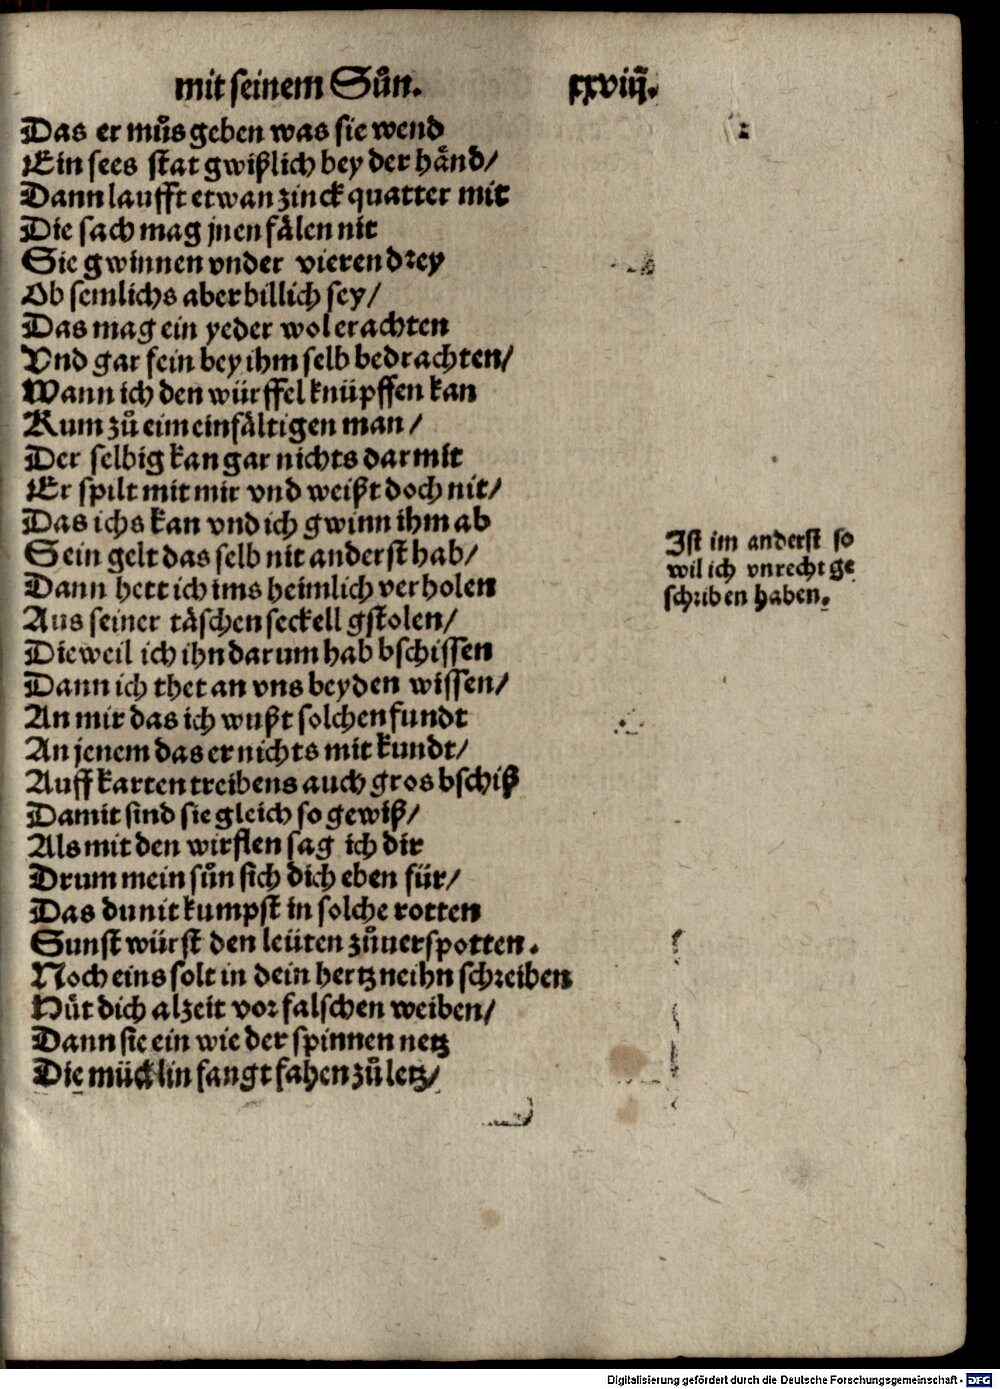 mit seinem Sůn. xxviij.
Das er můs geben was sie wend
Ein sees stat gwißlich bey der händ/
Dann laufft etwan zinck quatter mit
Die sach mag jnen fälen nit
Sie gwinnen vnder vieren drey
Ob semlichs aber billich sey/
Das mag ein yeder wol erachten
Vnd gar fein bey ihm selb bedrachten/
Wann ich den würffel knüpffen kan
Kum zů eim einfältigen man/
Der selbig kan gar nichts darmit
Er spilt mit mir vnd weißt doch nit/
Das ichs kan vnd ich gwinn ihm ab
Sein gelt das selb nit anderst hab/
Dann hett ich ims heimlich verholen
Aus seiner täschen seckell gstolen/
Dieweil ich ihn darum hab bschissen
Dann ich thet an vns beyden wissen/
An mir das ich wußt solchen fundt
An jenem das er nichts mit kundt/
Auff karten treibens auch gros bschiß
Damit sind sie gleich so gewiß/
Als mit den wirflen sag ich dir
Drum mein sůn sich dich eben für/
Das du nit kumpst in solche rotten
Sunst würst den leüten zůuerspotten.
Noch eins solt in dein hertz neihn schreiben
Hüt dich alzeit vor falschen weiben/
Dann sie ein wie der spinnen netz
Die mücklin fangt fahen zů letz/
Ist im anderst so
wil ich vnrecht ge
schriben haben.
Digitalisierung gefördert durch die Deutsche Forschungsgemeinschaft - DFG